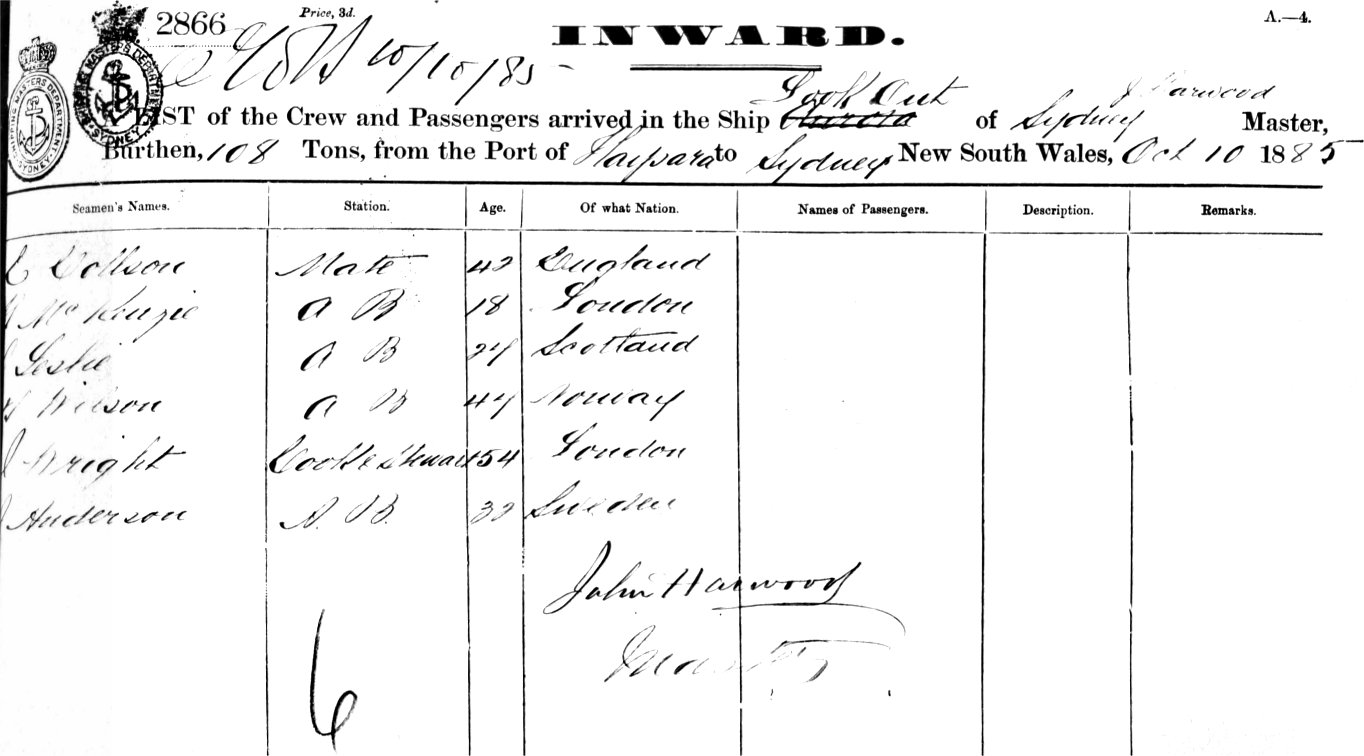 2866
Price, 3d.
INWARD.
A.—4.
10/10/85
Look Out
J Harwood
A LIST of the Crew and Passengers arrived in the Ship of Sydney Master,
Burthen, 108 Tons, from the Port of Kaipara to Sydney New South Wales, Oct 10 1885
Seamen's Names. Station. Age. Of what Nation. Names of Passengers. Description. Remarks.
Mate 42 England
McKenzie A B 18 London
Leslie A B 24 Scotland
Wilson A B 44 Norway
J Wright Cook & Steward 54 London
Anderson A. B. 32 Sweden
John Harwood
Master
6